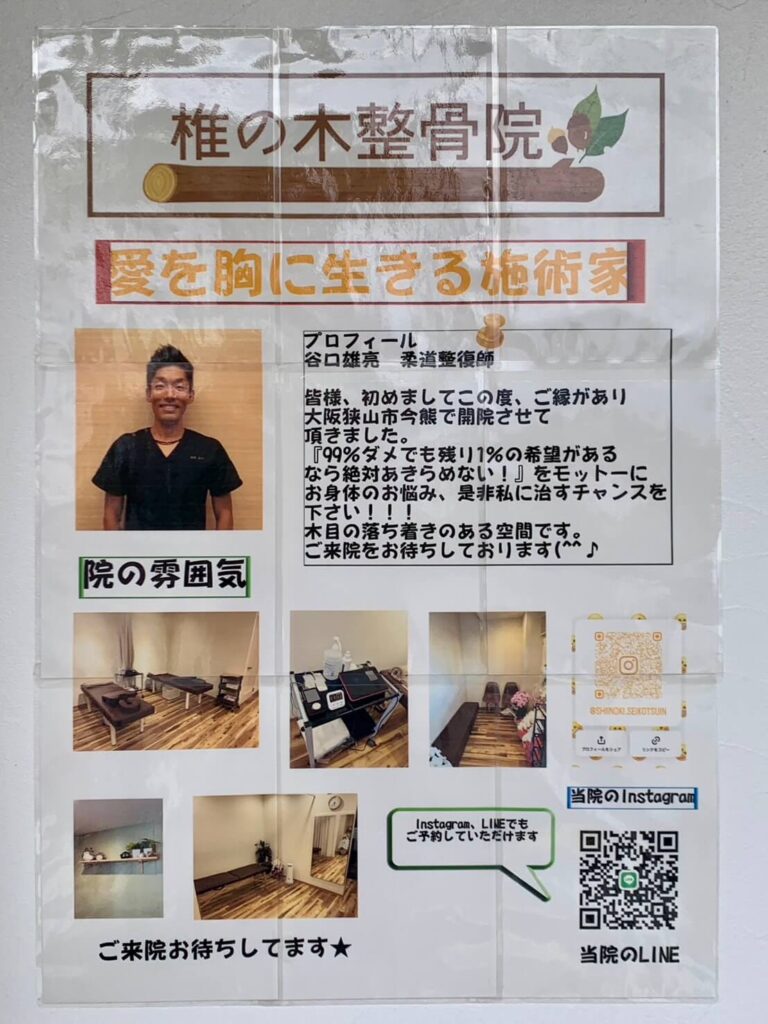 椎の木整骨院
愛を胸に生きる施術家
プロフィール
谷口雄亮 柔道整復師
皆様、初めましてこの度、ご縁があり
大阪狭山市今熊で開院させて
頂きました。
『99%ダメでも残り1%の希望がある
なら絶対あきらめない！』をモットーに
お身体のお悩み、是非私に治すチャンスを
下さい！！！
木目の落ち着きのある空間です。
ご来院をお待ちしております(^^♪
院の雰囲気
@SHIINOKI.SEIKOTSUIN
プロフィールをシェア
リンクをコピー
当院のInstagram
Instagram、LINEでも
ご予約していただけます
当院のLINE
ご来院お待ちしてます★